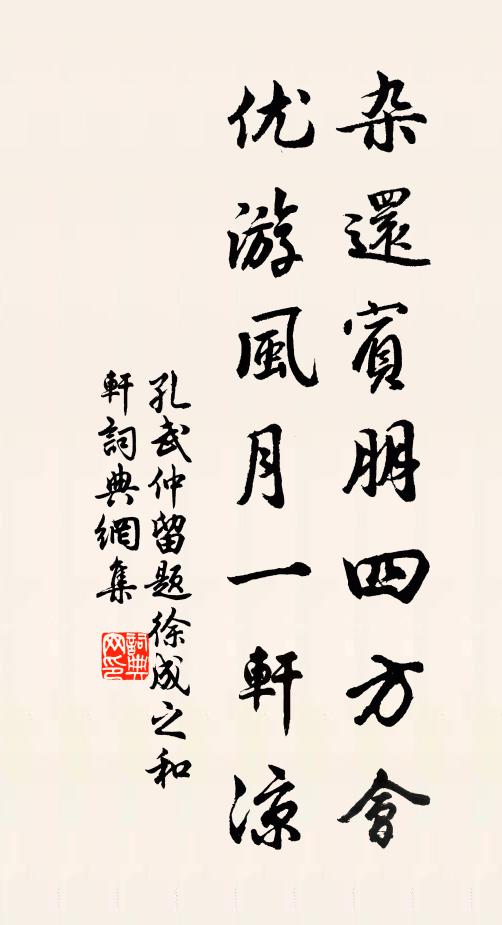 杂還賓朋四方會
优游風月一軒涼
孔武仲留題徐成之和
軒詞典網集
詞典网印